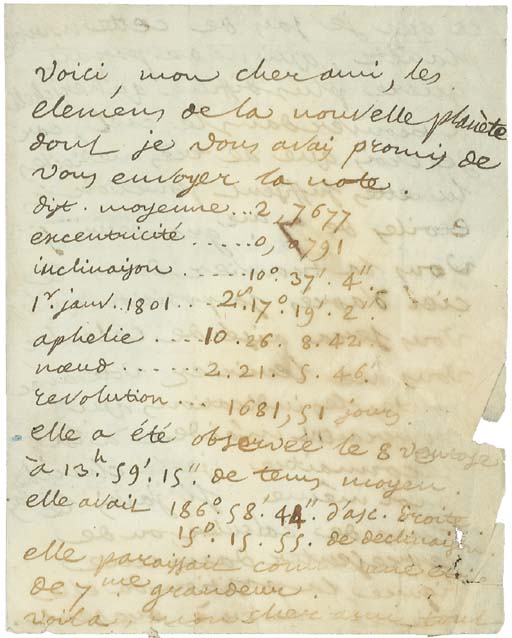 Voici, mon cher ami, les
elemens de la nouvelle planète
dont je vous avai promis de
vous envoyer la note.
dist. moyenne .. 2,7677
excentricité ..... 0,0791
inclinaison ..... 10°. 37'. 4".
1r. janv. 1801 ... 2s. 17°. 19. 2.
aphelie ..... 10. 26. 8. 42.
nœud ...... 2. 21. 5. 46.
revolution ... 1681,51 jours
elle a été observée le 8 ventose
à 13h. 59'. 15" de tems moyen.
elle avait 186°. 58'. 44". d'asc. droite
15D. 15. 55. de declinaiso
elle paraissait comme une
de 7me grandeur.
voilà, mon cher ami tout